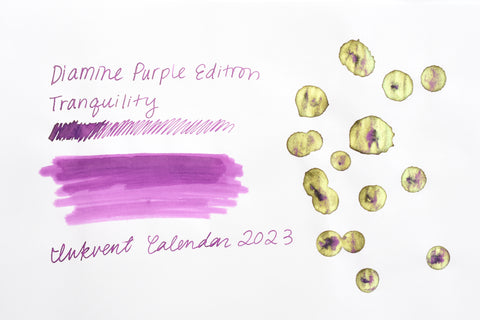 Diamine Purple Edition
Tranquility
Inkvent Calendar 2023